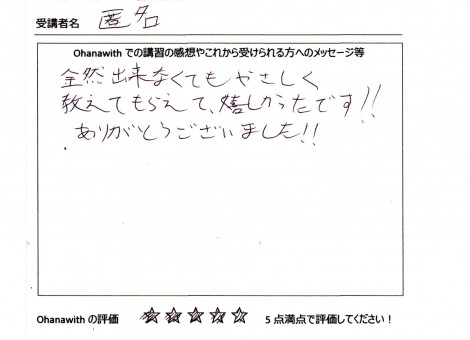 受講者名 匿名
Ohanawith での講習の感想やこれから受けられる方へのメッセージ等
全然出来なくてもやさしく
教えてもらえて、嬉しかったです!!
ありがとうございました!!
Ohanawith の評価 ☆☆☆☆☆ 5点満点で評価してください！